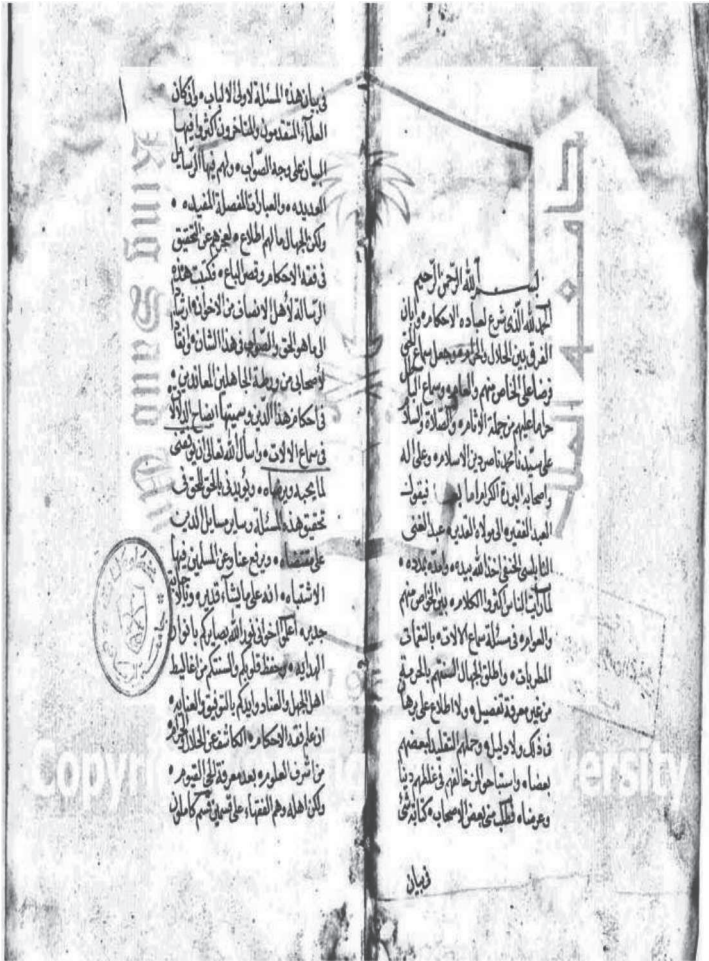 بسم الله الرحمن الرحيم
الحمد لله الذي شرع لعباده الاحكام وابان
الفرق بين الحلال والحرام وجعل سماع الحق
فرضا على الخاص منهم والعام وسماع الباطل
حراما عليهم من جملة الاثام والصلاة والسلام
على سيدنا محمد ناصر دين الاسلام وعلى اله
واصحابه البررة الكرام اما بعد فيقول
العبد الفقير الى مولاه القدير عبد الغني
النابلسي الحنفي اخذ الله بيده وامده بمدده
لما رايت الناس اكثروا الكلام بين الخواص منهم
والعوام في مسئلة سماع الالات بالنغمات
المطربات واطلق الجهال السنتهم بالحرمة
من غير معرفة تفصيل ولا اطلاع على برهان
في ذلك ولا دليل وحملهم التقليد لبعضهم
بعضا واستباحوا لمن خالفهم في غالبهم دينا
وعرضا فطلب مني بعض الاصحاب كتابة شئ
في بيان
في بيان هذه المسئلة لاولي الالباب وان كان
العلماء المتقدمون والمتاخرون اكثروا فيها
البيان على وجه الصواب ولهم فيها الرسايل
العديده والعبارات المفصلة المفيده
ولكن الجهال ما لهم اطلاع لعجزهم عن التحقيق
في فقه الاحكام وقصر الباع فكتبت هذه
الرسالة لأهل الانصاف من الاخوان ارشادا
الى ما هو الحق والصواب في هذا الشان وانقاذا
لأصحابي من ورطة الجاهلين المعاندين
في احكام هذا الدين وسميتها ايضاح الدلالات
في سماع الالات واسأل الله تعالى ان يوفقني
لما يحبه ويرضاه ويؤيدني بالحق للحق في
تحقيق هذه المسئلة وساير مسايل الدين
على مقتضاه ويرفع عنا وعن المسلمين فيها
الاشتباه انه على ما يشآء قدير وبالاجابة
جدير اعلموا اخواني نور الله بصايركم بانوار
الهدايه وحفظ قلوبكم والسنتكم من اغاليط
اهل الجهل والعناد وايدكم بالتوفيق والعنايه
ان علم فقه الاحكام الكاشف عن الحلال والحرام
من اشرف العلوم بعد معرفة الحي القيوم
ولكن اهله وهم الفقهاء على قسمين قسم كاملون
King Saud University
جامعة الملك
Copyright
1957